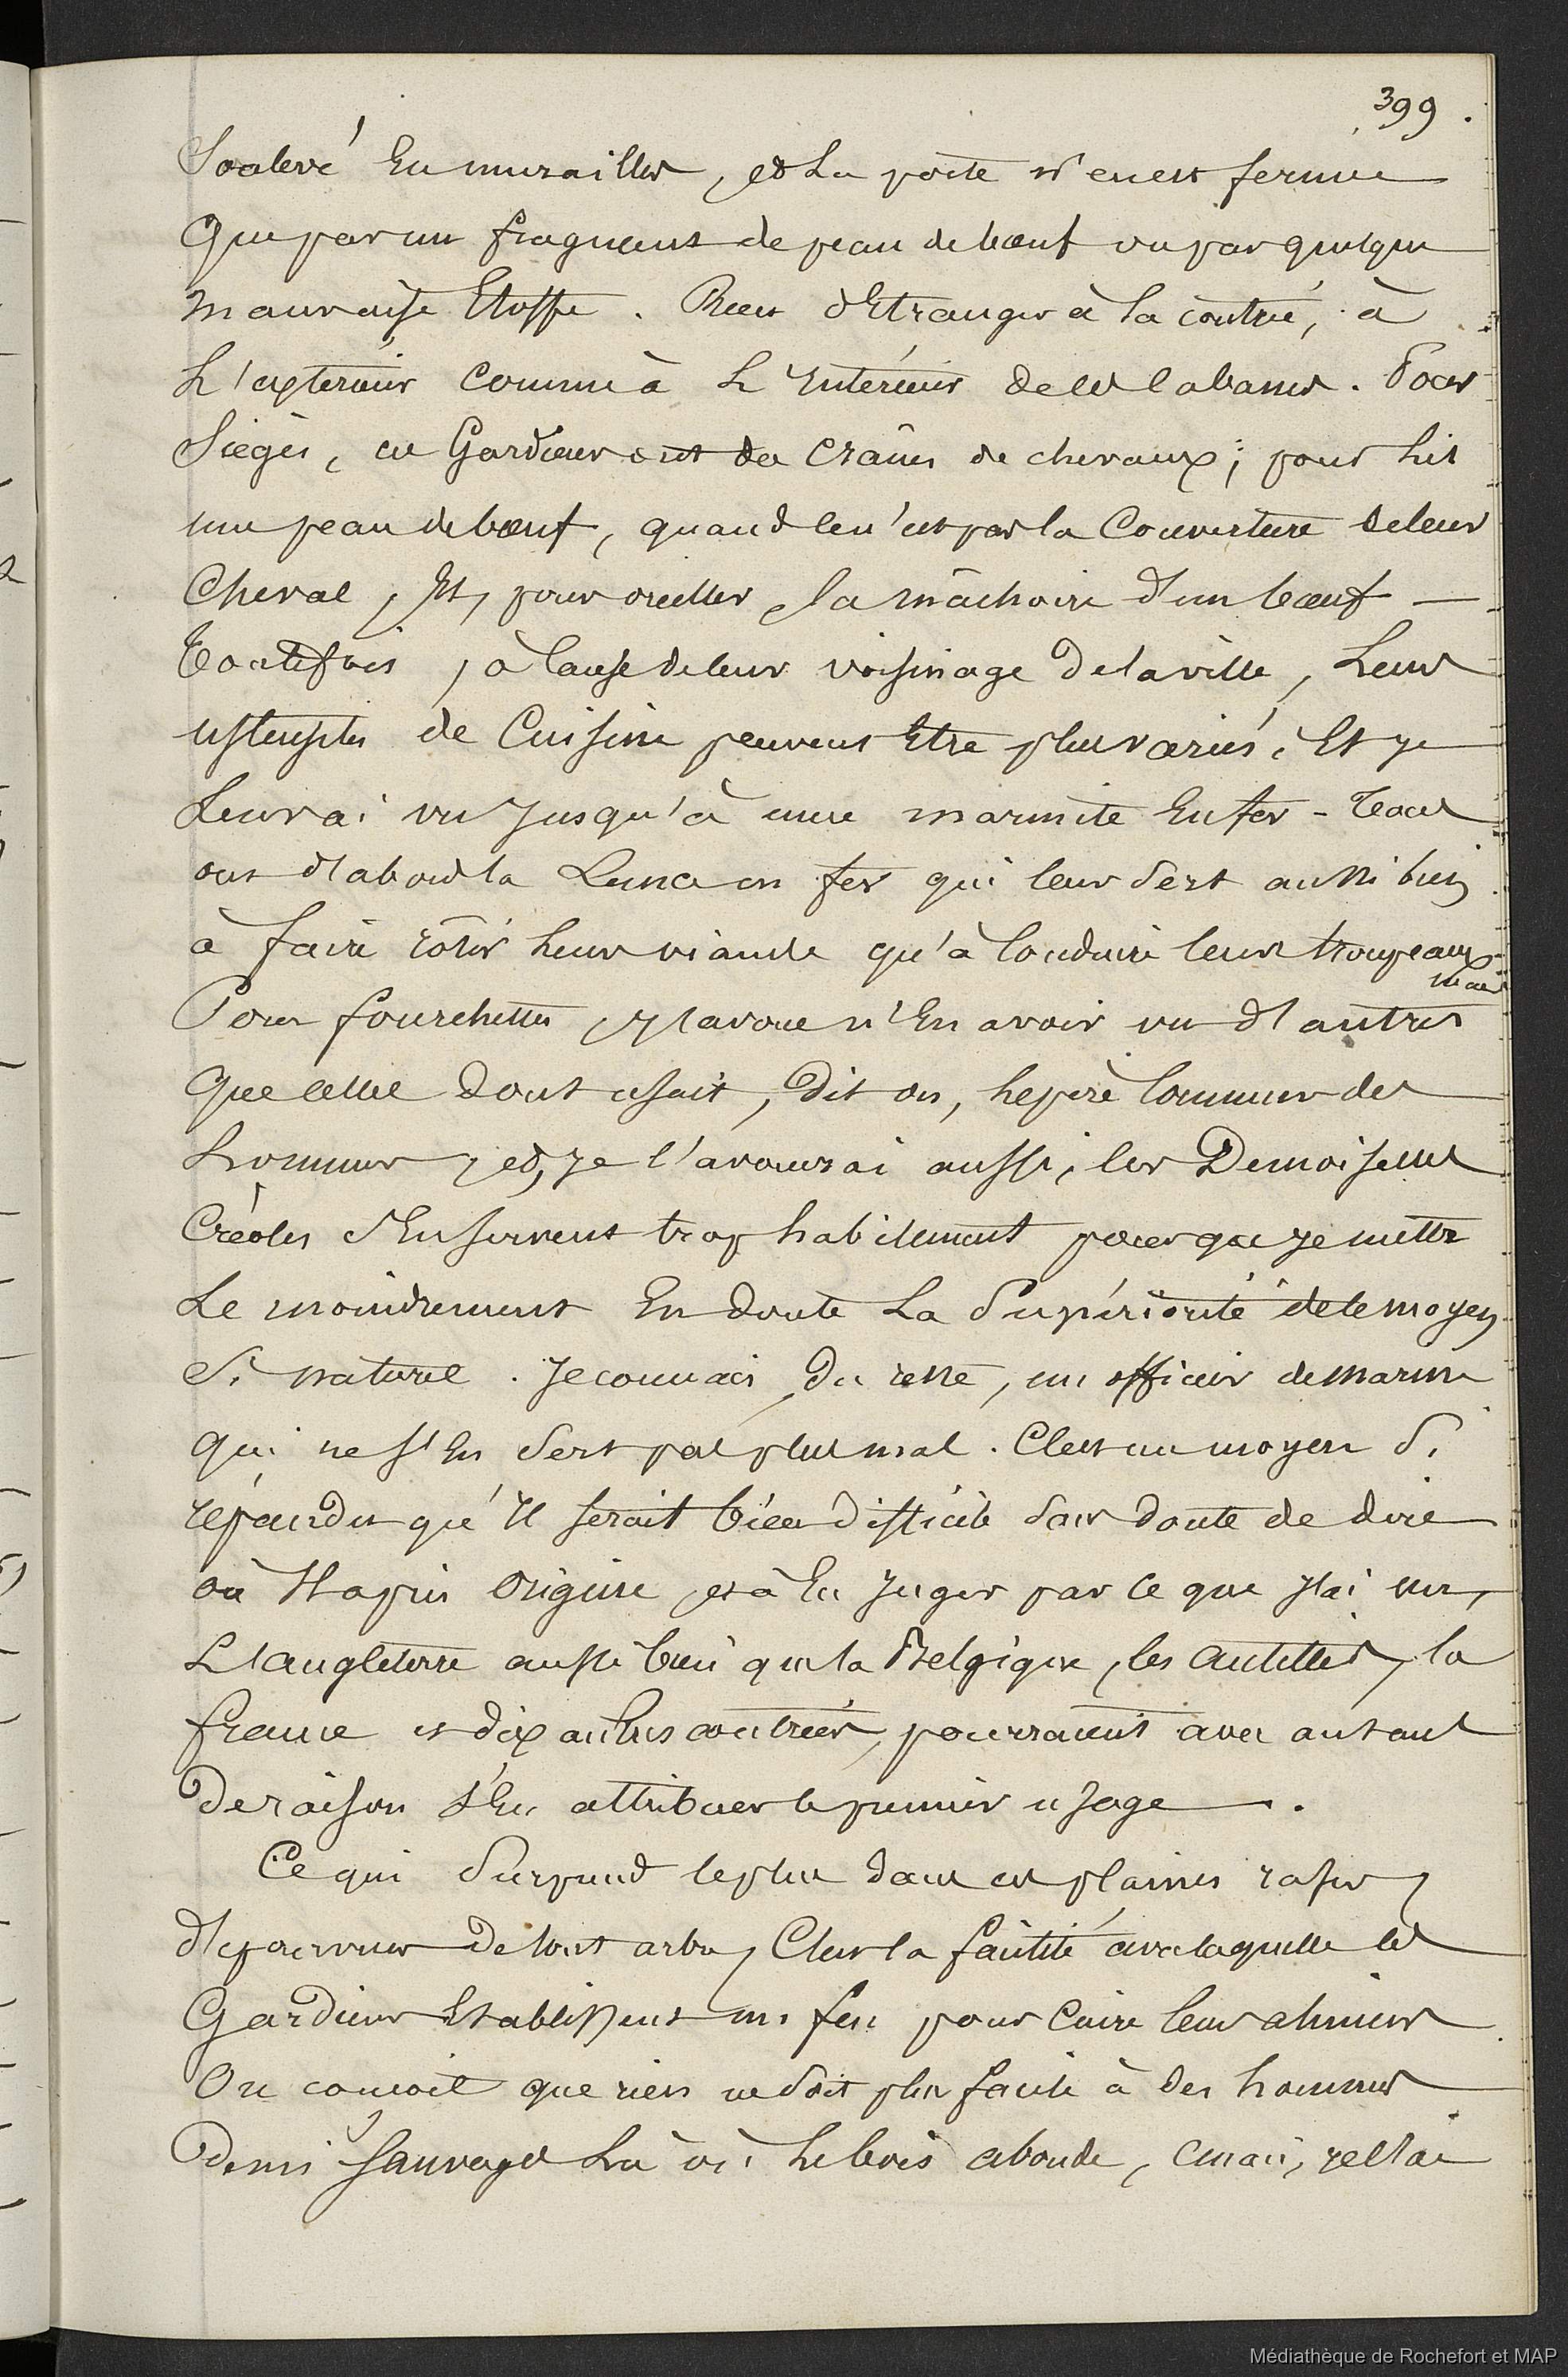 399.
Soulevé En murailles, et La porte n'en est fermée
Que par un fragment de peau de bœuf ou par quelque
mauvaise Etoffe. Rien d'Etranger à la contrée, à
L'extérieur comme à L'Intérieur de ces Cabanes. Pour
Sièges, ces Gardiens ont des Crânes de chevaux; pour Lit
une peau de bœuf, quand ce n'est pas la Couverture de leur
Cheval, Et, pour oreiller, la mâchoire d'un bœuf —
Toutefois, à Cause de leur voisinage de la ville, Leurs
ustensiles de Cuisine peuvent Etre plus variés, Et je
Leur ai vu Jusqu'à une marmite En fer - Tous
ont d'abord la Lance en fer qui leur Sert aussi bien
à faire rôtir Leur viande qu'à Conduire leurs troupeaux
mais
Pour fourchettes, J'avoue n'En avoir vu d'autres
Que celle dont usait, dit on, Le père Commun des
hommes, et, je l'avouerai aussi, les Demoiselles
Créoles s'En servent trop habilement pour que je mette
Le moindrement En doute La Supériorité de ce moyen
Si naturel. Je connais, du reste, un officier de marine
qui ne s'En Sert pas plus mal. C'est un moyen Si
répandu qu'Il serait bien difficile Sans doute de dire
où Il a pris Origine, et à En Juger par ce que J'ai vu,
L'angleterre aussi bien que la Belgique, les antilles, la
france et dix autres contrées, pourraient avec autant
De raison s'En attribuer le premier usage.
Ce qui Surprend le plus dans ces plaines rases,
dépourvues de tout arbre, C'est la facilité avec laquelle les
Gardiens Etablissent un feu pour Cuire leurs aliments
On conçoit que rien ne Soit plus facile à des hommes
Demi Sauvages Là où Le bois abonde,
Médiathèque de Rochefort et MAP